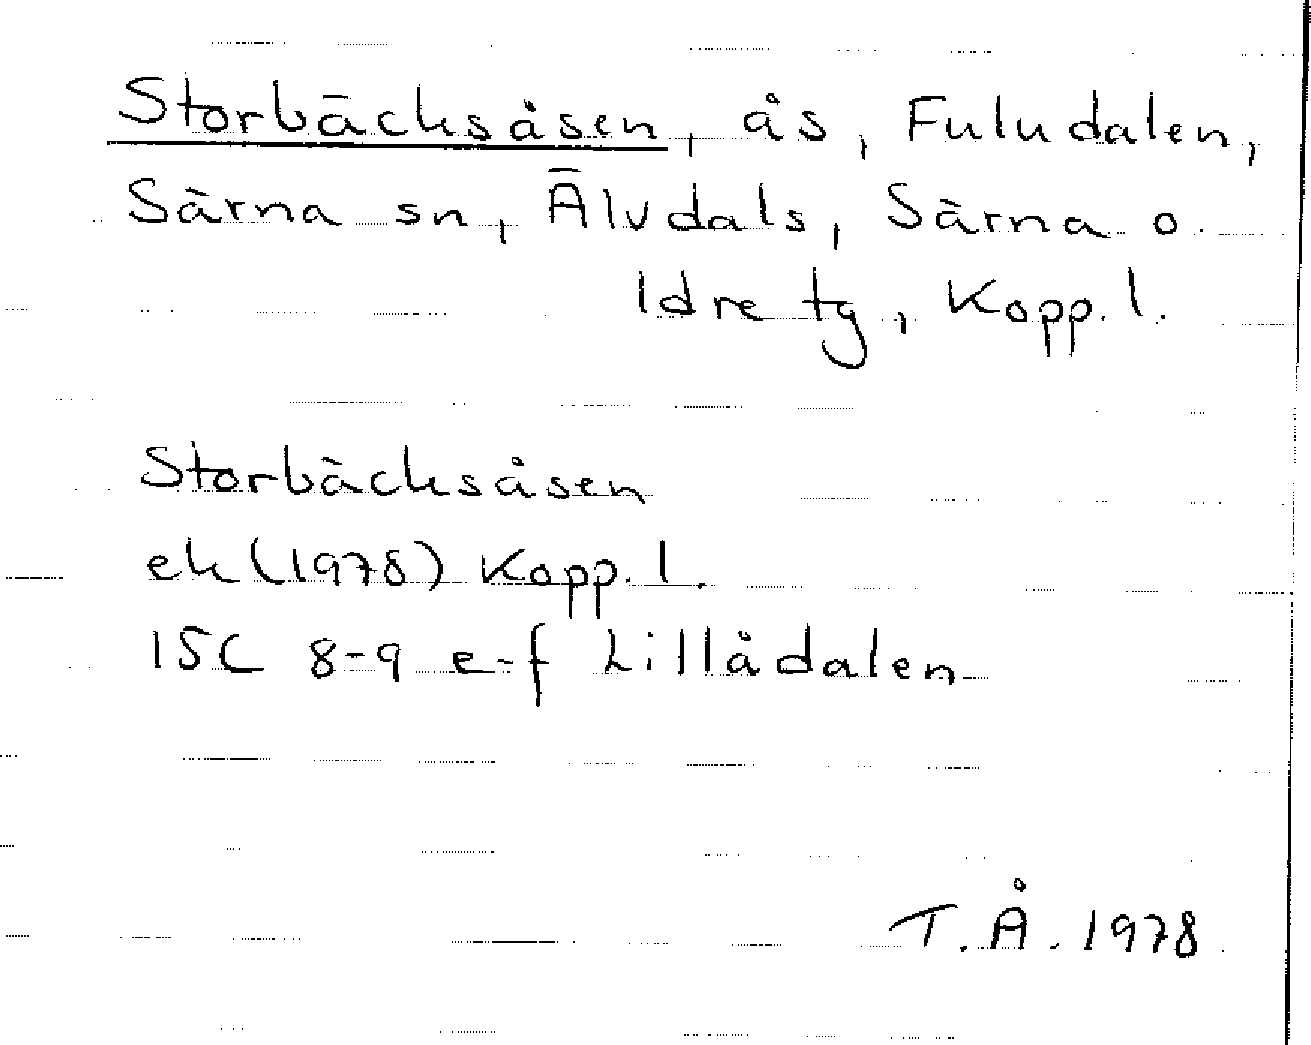 Storbäcksåsen, ås, Fuludalen,
Särna sn, Älvdals, Särna o.
Idre tg, Kopp. l.
Storbäcksåsen
ek (1978) Kopp. l.
15C 8-9 e-f Lillådalen
T.Å. 1978